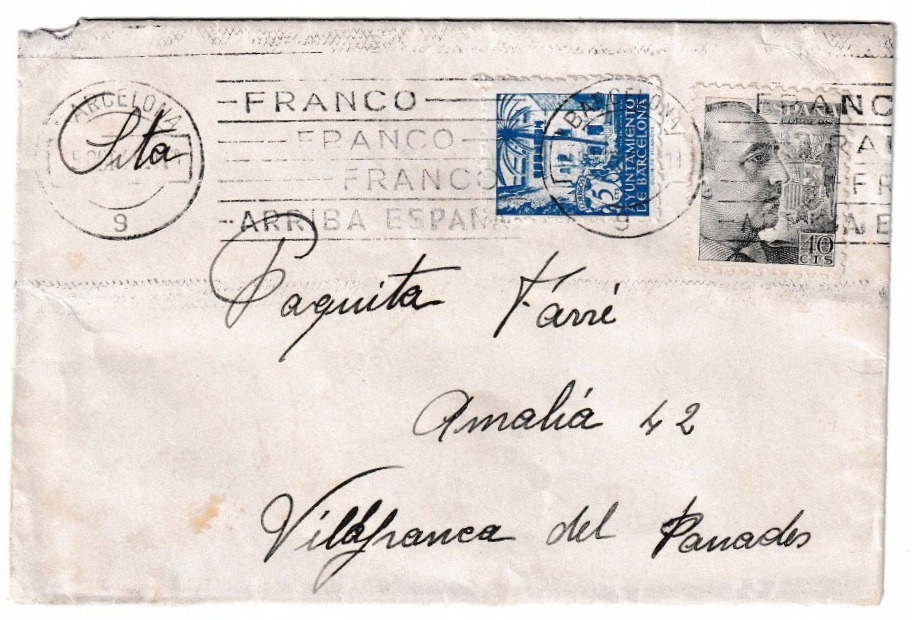 BARCELONA
9
FRANCO
FRANCO
FRANCO
ARRIBA ESPAÑA
5 CTS
AYUNTAMIENTO
DE BARCELONA
BARCELONA
9
ESPAÑA
CORREOS
40
CTS
FRANCO
FRANCO
FR
ARRIBA E
Srta
Paquita Farré
Amalia 42
Villafranca del Panades